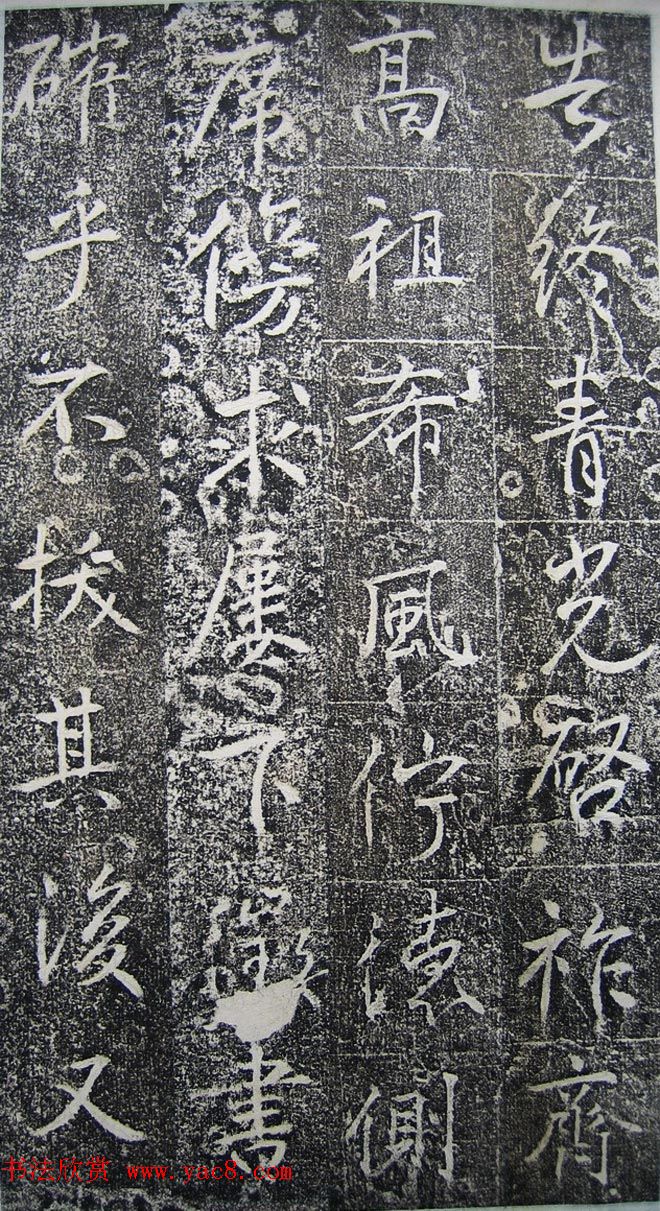 告終青光啓祚齊
高祖希風佇德側
席傍求屢下徵書
確乎不拔其後又
书法欣赏 www.yac8.com